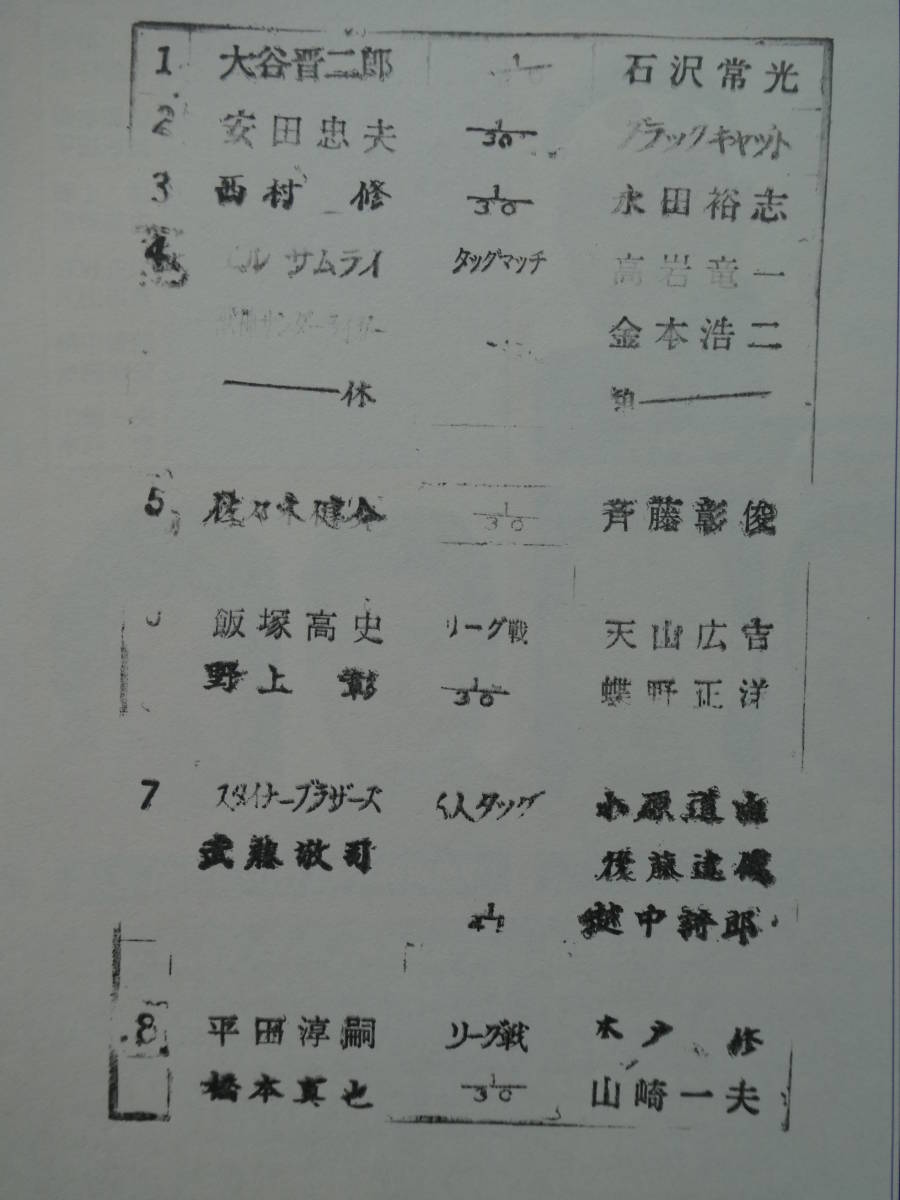 1 大谷晋二郎 石沢常光
2 安田忠夫 1/30 ブラックキャット
3 西村 修 1/30 永田裕志
4 エル サムライ タッグマッチ 高岩竜一
獣神サンダーライガー 金本浩二
休 憩
5 佐々木健介 1/30 斉藤彰俊
飯塚高史 リーグ戦 天山広吉
野上 彰 1/30 蝶野正洋
7 スタイナーブラザーズ 6人タッグ 小原道由
武藤敬司 後藤達俊
越中詩郎
8 平田淳嗣 リーグ戦 木戸 修
橋本真也 1/30 山崎一夫